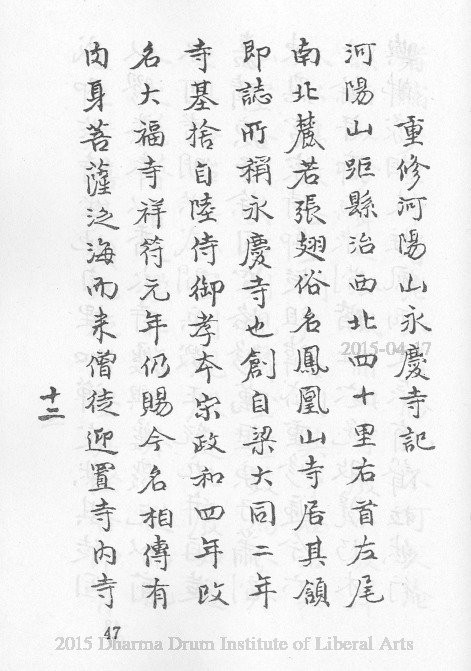 重修河陽山永慶寺記
河陽山距縣治西北四十里右首左尾
南北麓若張翅俗名鳳凰山寺居其頷
即誌所稱永慶寺也創自梁大同二年
寺基捨自陸侍御孝本宋政和四年改
名大福寺祥符元年仍賜今名相傳有
肉身菩薩泛海而来僧徒迎置寺内寺
十二
47
2015-04-17
2015 Dharma Drum Institute of Liberal Arts